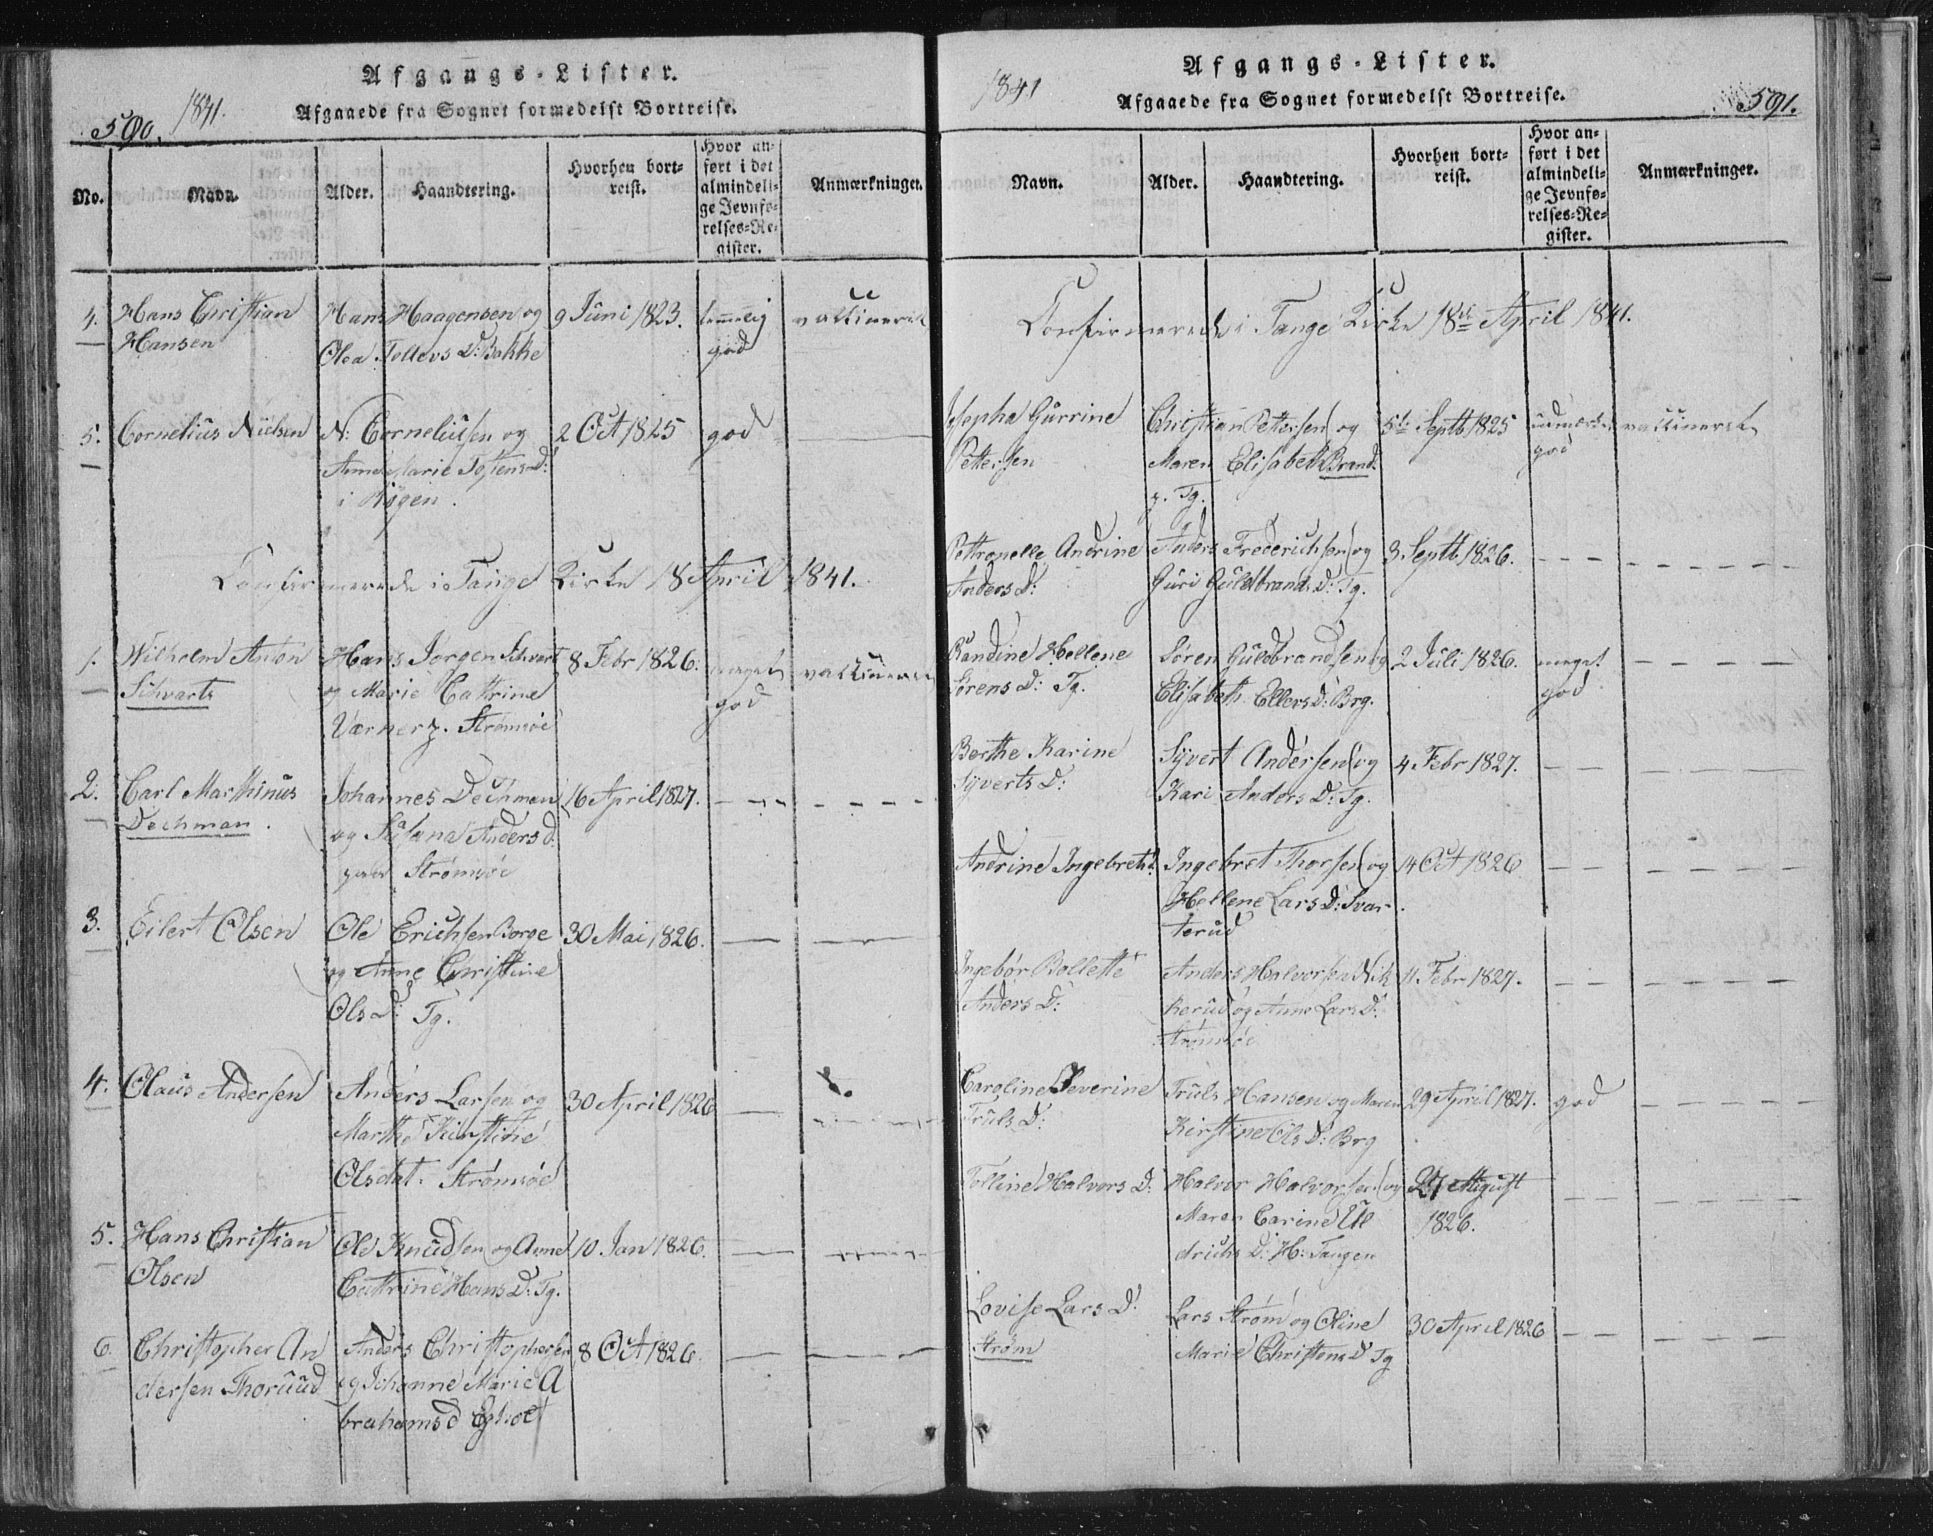 Afgangs-Lister.
590. 1841. Afgaaede fra Sognet formedelst Bortreise.
No. Navn. Alder. Haandtering. Hvorhen bortreist. Hvor anført i det almindelige Jevnførelses-Register. Anmærkninger.
4. Hans Christian Hans Haagensen og 9 Juni 1823. vaccineret
Hansen Olea Tollevs D: Bakke god
5. Cornelius Nielsen N: Corneliusen og 2 Oct 1825 god
Anne Marie Tostens D:
i Kogen.
Confirmerede i Tange Kirke 18 April 1841.
1. Wilhelm Anton Hans Jørgen Schvart 8 Febr 1826. meget vaccineret
Schvarts og Marie Cathrine god
Værner p. Strømsøe
2. Carl Marthinus Johannes Dechman 16 April 1827. - - - - - -
Dechman. og Susana Anders d.
paa Strømsøe
3. Eilert Olsen Ole Erichsen Borge 30 Mai 1826. — —
og Anne Christine
Ols D: Tg.
4. Claus Andersen Anders Larsen og 30 April 1826 — - - - -
Marthe Kirstine
Olsdat. Strømsøe
5. Hans Christian Ole Knudsen og Anne 10 Jan 1826. — - - - -
Olsen Cathrine Hans D: Tg.
6. Christopher An Anders Christophersen 8 Oct 1826. — — - -
dersen Thoruud og Johanne Marie A
brahams d
Afgangs-Lister.
1841 Afgaaede fra Sognet formedelst Bortreise. 591.
Navn. Alder. Haandtering. Hvorhen bortreist. Hvor anført i det almindelige Jevnførelses-Register. Anmærkninger.
Confirmerede i Tange Kirke 18de April 1841.
Josepha Gurrine Christian Pettersen og 5te Septb 1825 udmærket vaccineret
Pettersen Maren Elisabeth Brand. god
p. Tg.
Petronelle Andrine Anders Frederichsen og 3 Septb. 1826. - - - - - - - - -
Anders D: Guri Guldbrands D: Tg.
Randine Hellene Søren Guldbrandsen og 2 Juli 1826. meget — — — —
Sørens D: Tg. Elisabeth Ellers D: Brg. god
Berthe Karine Syvert Andersen og 4 Febr 1827. — — — — —
Syverts D: Kari Anders D: Tg.
Andrine Ingebrets d. Ingebret Thorsen og 14 Oct 1826 — — — — —
Hellene Lars D: Svar
terud
Ingebor Bollette Anders Halvorsen Nik 11 Febr 1827. — — — — —
Anders D: kerud og Anne Lars D:
Strømsøe
Caroline Severine Truls Hansen og Maren 29 April 1827. god — — — —
Truls D: Kirstine Ols D: Brg
Tolline Halvors D: Halvor Halvorsen og 27 August — — — — —
Maren Carine Ul 1826.
drichs D: H: Tangen
Lovise Lars D: Lars Strøm og Oline 30 April 1826 — — — — —
Strøm Marie Christens D Tg